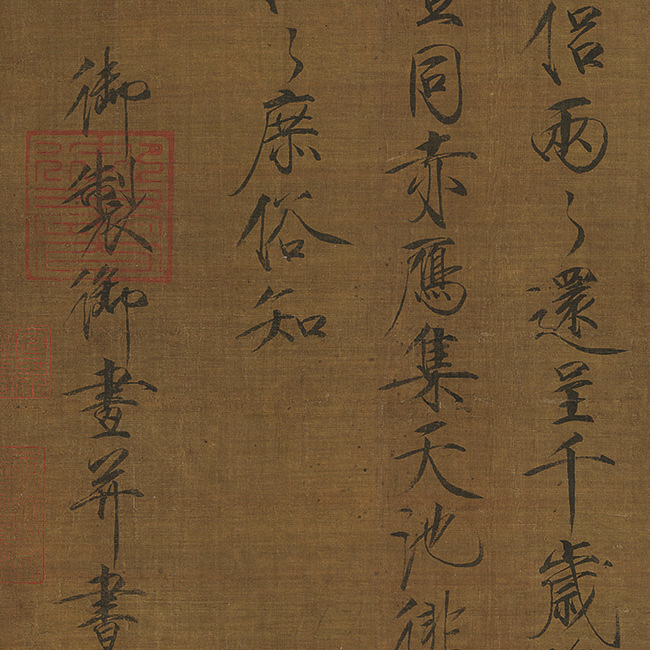 侶兩〻還呈千歲
同赤鴈集天池徘
〻庶俗知
御製御畫并書